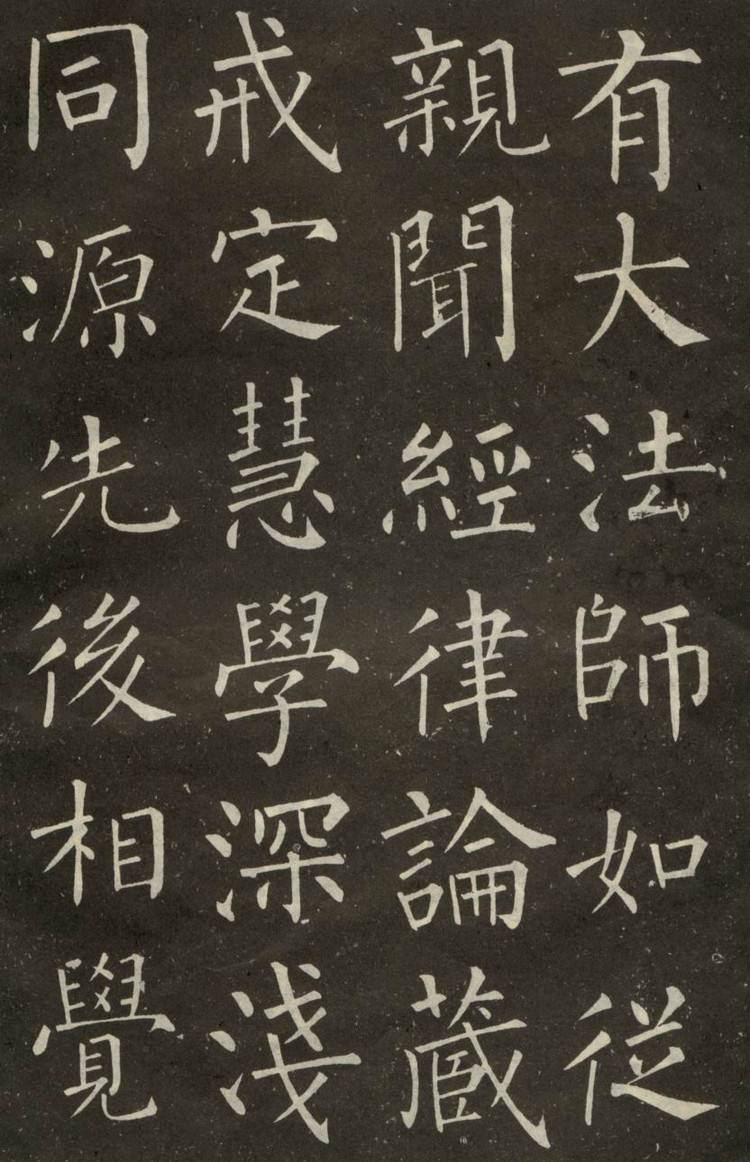 有大法師如從
親聞經律論藏
戒定慧學深淺
同源先後相覺